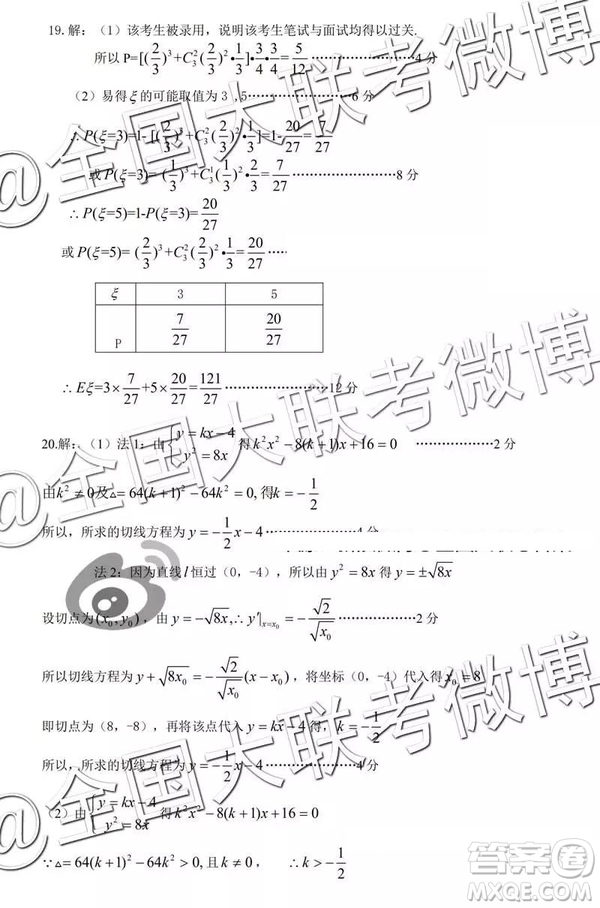 19.解：（1）该考生被录用，说明该考生笔试与面试均得以过关.
所以 P=[(2/3)³+C₃²(2/3)²•1/3]•3/4•3/4=5/12 ⋯⋯⋯⋯⋯⋯4分
（2）易得ξ的可能取值为3 ,5⋯⋯⋯⋯⋯⋯6分
∴P(ξ=3)=1-[(2/3)³+C₃²(2/3)²•1/3]=1-20/27=7/27
或P(ξ=3)=(1/3)³+C₃¹(1/3)²•2/3=7/27 ⋯⋯⋯⋯⋯⋯8分
∴P(ξ=5)=1-P(ξ=3)=20/27
或P(ξ=5)=(2/3)³+C₃²(2/3)²•1/3=20/27 ⋯⋯
ξ 3 5
P 7/27 20/27
∴Eξ=3×7/27+5×20/27=121/27 ⋯⋯⋯⋯⋯⋯12分
20.解:（1）法1：由{y=kx-4 y²=8x 得k²x²-8(k+1)x+16=0 ⋯⋯⋯⋯⋯2分
由k²≠0及△=64(k+1)²-64k²=0,得k=-1/2
所以，所求的切线方程为y=-1/2x-4⋯⋯⋯⋯⋯⋯4分
法2：因为直线l恒过（0，-4），所以由y²=8x得y=±√8x
设切点为(x₀,y₀)，由y=-√8x,∴y'|x=x₀=-√2/√x₀ ⋯⋯⋯⋯⋯2分
所以切线方程为y+√8x₀=-√2/√x₀(x-x₀)，将坐标（0，-4）代入得x₀=8
即切点为（8，-8），再将该点代入y=kx-4得，k=-1/2
所以，所求的切线方程为y=-1/2x-4⋯⋯⋯⋯⋯⋯4分
（2）由{y=kx-4 y²=8x 得k²x²-8(k+1)x+16=0
∵△=64(k+1)²-64k²>0,且k≠0， ∴k>-1/2
@全国大联考微博
@全国大联考微博
@全国大联考微博
答案卷
www.mxqe.com